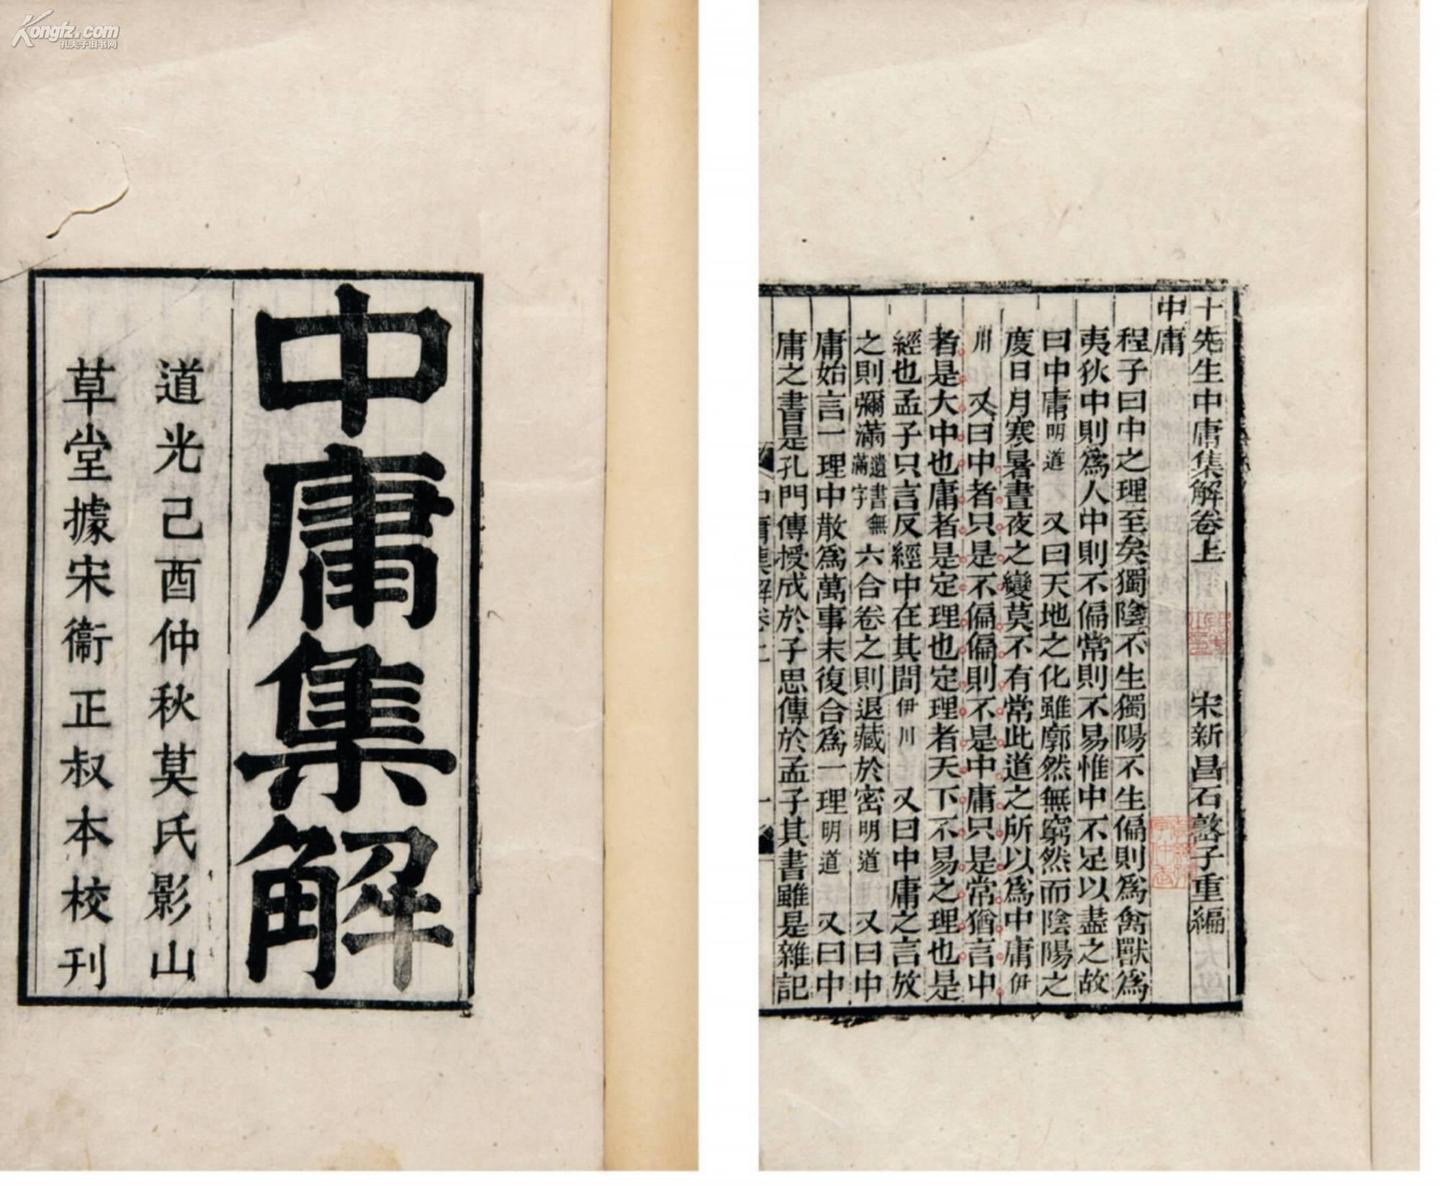 Kongfz.com
孔夫子旧书网
中庸集解
道光己酉仲秋莫氏影山
草堂據宋衞正叔本校刊
十先生中庸集解卷上
宋新昌石𡼖子重編
中庸
程子曰中之理至矣獨陰不生獨陽不生偏則爲禽獸爲
夷狄中則爲人中則不偏常則不易惟中不足以盡之故
曰中庸明道 又曰天地之化雖廓然無窮然而陰陽之
度日月寒暑晝夜之變莫不有常此道之所以爲中庸伊
川 又曰中者只是不偏偏則不是中庸只是常猶言中
者是大中也庸者是定理也定理者天下不易之理也是
經也孟子只言反經中在其間伊川 又曰中庸之言放
之則彌滿遺書無滿字六合卷之則退藏於密明道 又曰中
庸始言一理中散爲萬事末復合爲一理明道 又曰中
庸之書是孔門傳授成於子思傳於孟子其書雖是雜記
中庸集解卷上
一